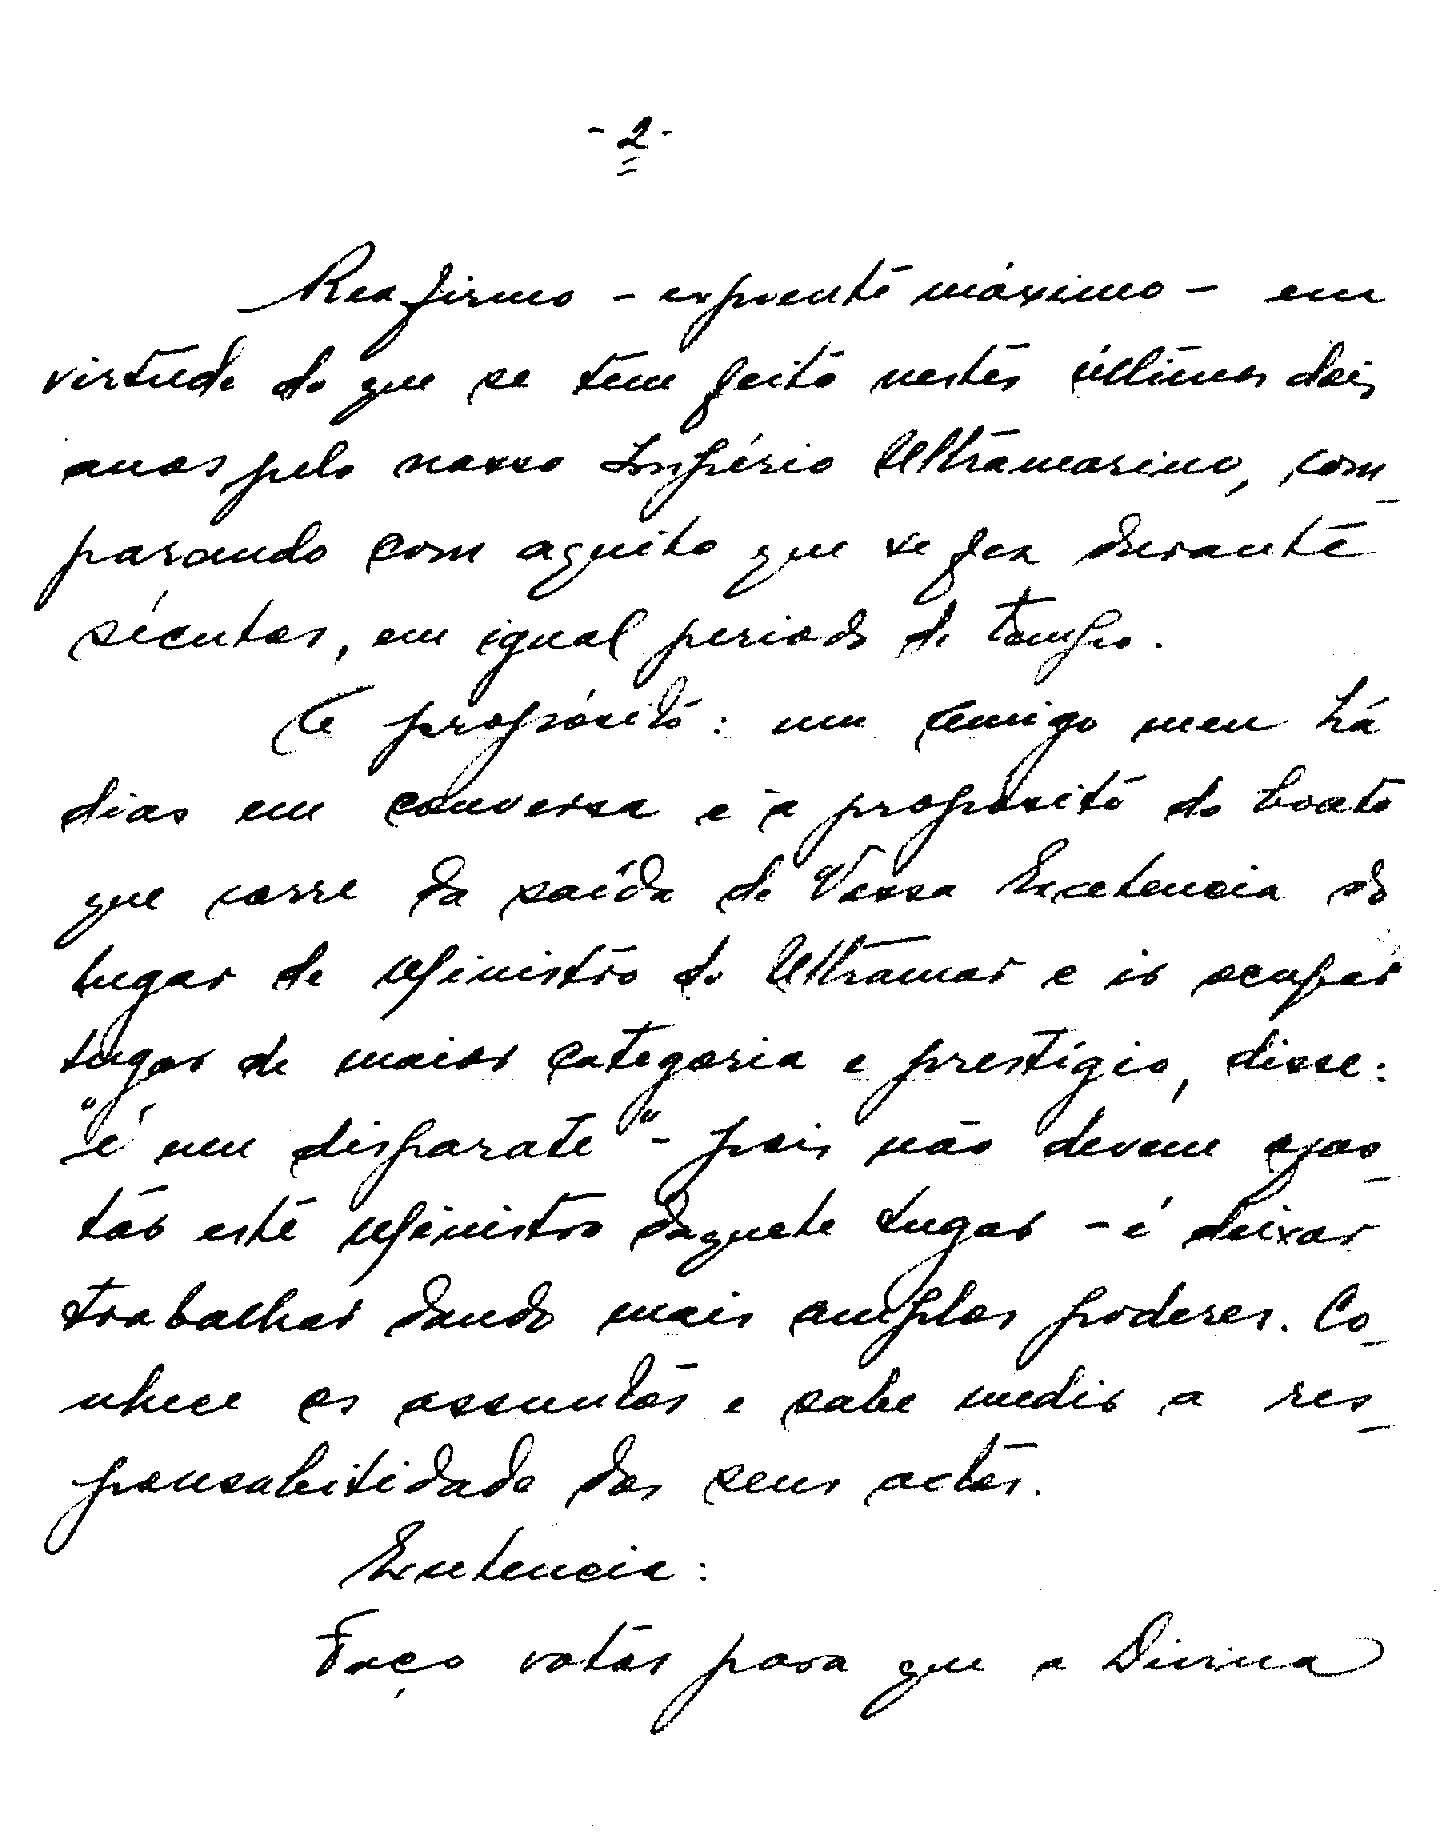 - 2 -
Reafirmo - expoente máximo - em
virtude do que se tem feito nestes últimos dois
anos pelo nosso Império Ultramarino, com-
parando com aquilo que se fez durante
séculos, em igual periodo de tempo.
A propósito: um amigo meu há
dias em conversa e a propósito do boato
que corre da saída de Vossa Excelencia do
lugar de Ministro do Ultramar e ir ocupar
lugar de maior categoria e prestígio, disse:
"é um disparate" - pois não devem afas-
tar este Ministro daquele lugar - é deixar
trabalhar dando mais amplos poderes. Co-
nhece os assuntos e sabe medir a res-
ponsabilidade dos seus actos.
Excelencia:
Faço votos para que a Divina